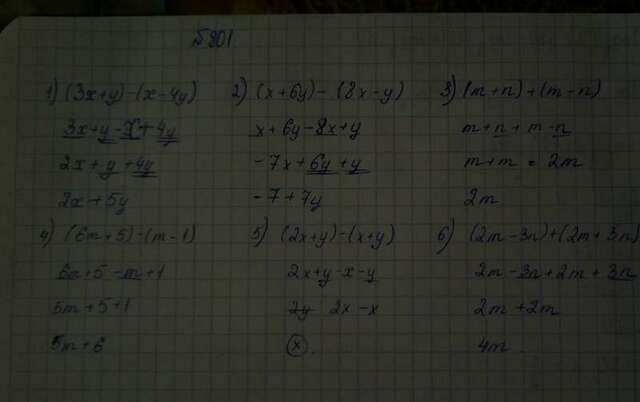 №801.
1) (3x+y)-(x-4y)
3x+y-x+4y
2x+y+4y
2x+5y
2) (x+6y)-(8x-y)
x+6y-8x+y
-7x+6y+y
-7+7y
3) (m+n)+(m-n)
m+n+m-n
m+m = 2m
2m
4) (6m+5)-(m-1)
6m+5-m+1
5m+5+1
5m+6
5) (2x+y)-(x+y)
2x+y-x-y
2x-x
x.
6) (2m-3n)+(2m+3n)
2m-3n+2m+3n
2m+2m
4m